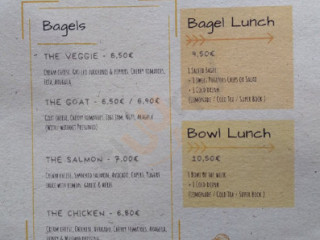 Bagels
THE VEGGIE - 6,50€
CREAM CHEESE, GRILLED AUBERGINE & PEPPERS, CHERRY TOMATOES,
FETA, ARUGULA
THE GOAT - 6,50€ / 6,90€
GOAT CHEESE, CHERRY TOMATOES, FIGS JAM, NUTS, ARUGULA
(WITH / WITHOUT PROSCIUTTO)
THE SALMON - 7,00€
CREAM CHEESE, SMOKED SALMON, AVOCADO, CAPERS, YOGURT
SAUCE WITH LEMON, GARLIC & HERBS
THE CHICKEN - 6,80€
CREAM CHEESE, CHICKEN, AVOCADO, CHERRY TOMATOES, ARUGULA,
HONEY & MUSTARD
Bagel Lunch
9,50€
1 SALTED BAGEL
+ POTATOES CHIPS OR SALAD
+ 1 COLD DRINK
(LEMONADE / COLD TEA / SUPER BOCK)
Bowl Lunch
10,50€
1 BOWL OF THE WEEK
+ 1 COLD DRINK
(LEMONADE / COLD TEA / SUPER BOCK)